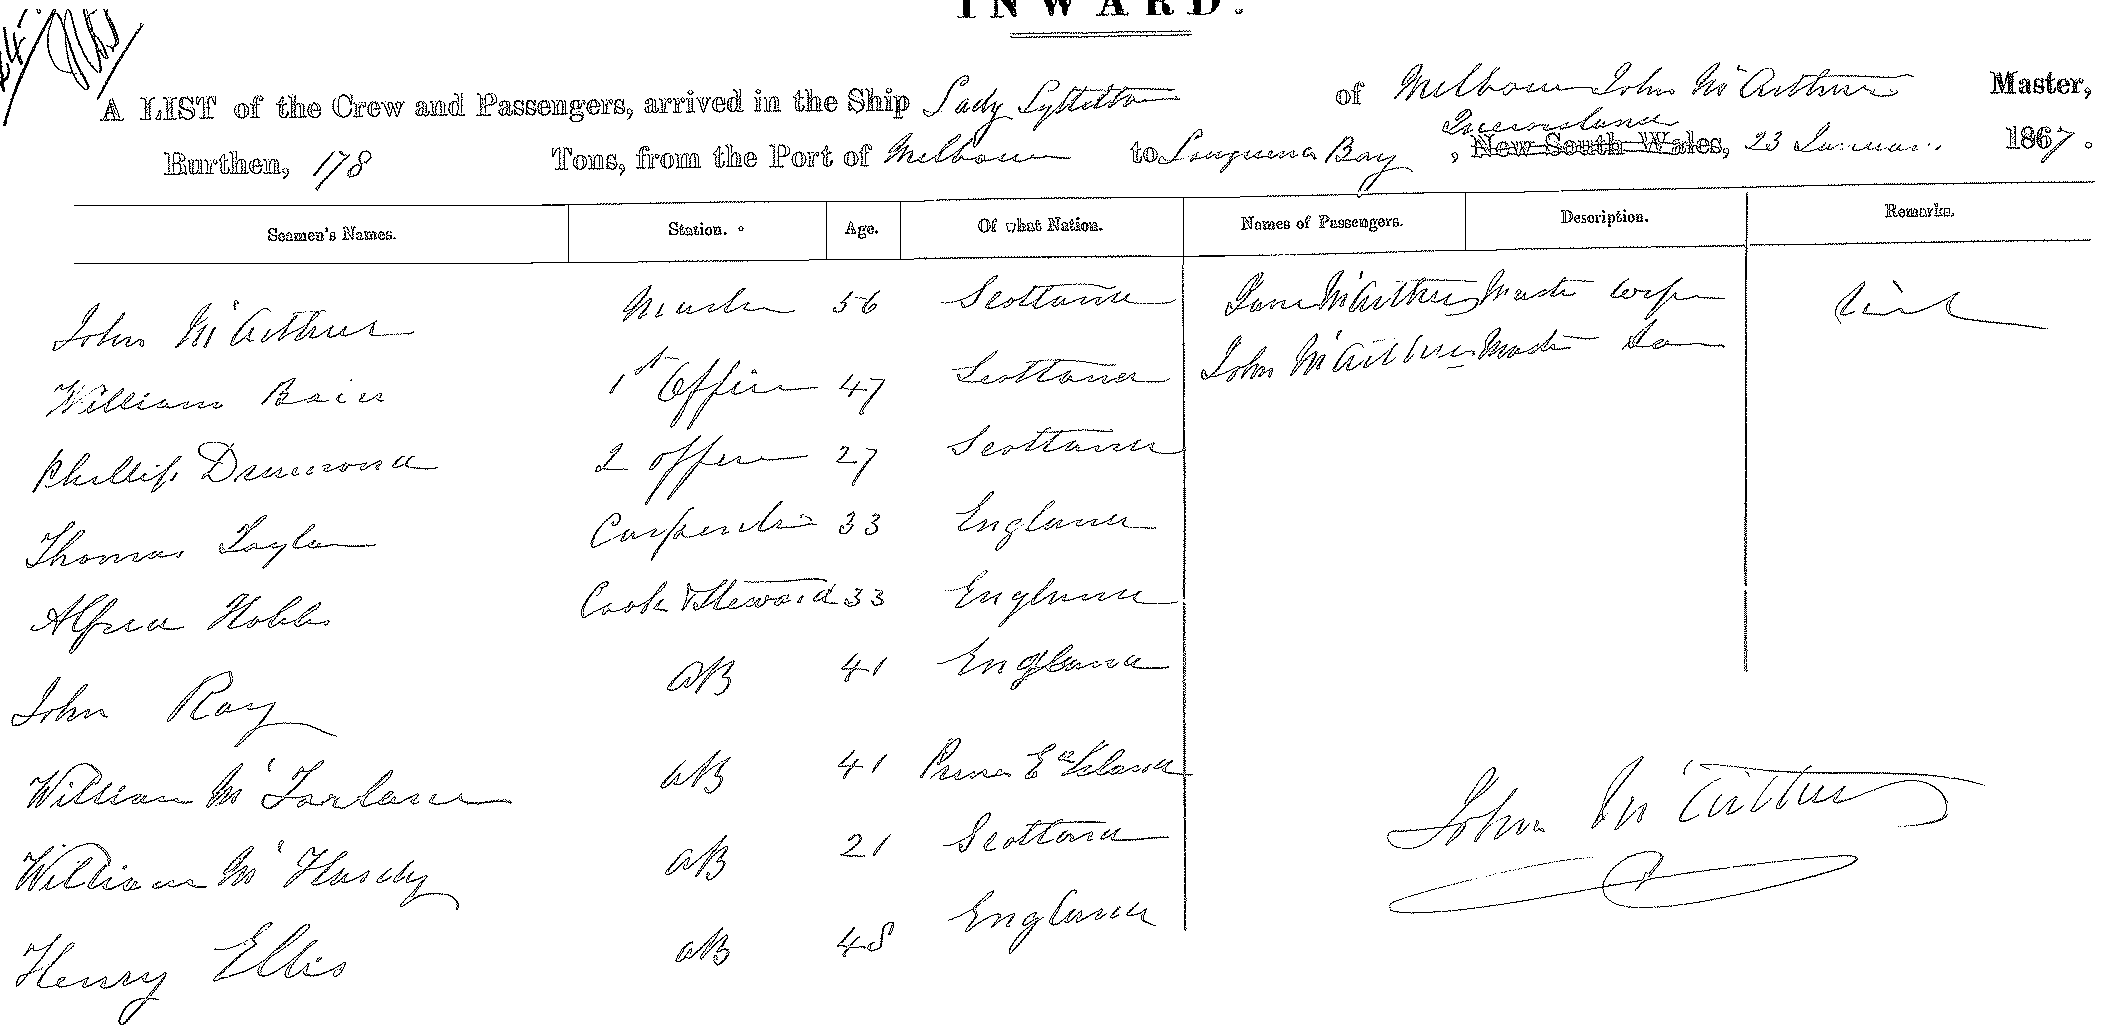 INWARD.
A LIST of the Crew and Passengers, arrived in the Ship Lady Lyttelton of Melbourne John McArthur Master,
Queensland
Burthen, 178 Tons, from the Port of Melbourne to Bay, New South Wales, 23 January 1867.
Seamen's Names. Station. Age. Of what Nation. Names of Passengers. Description. Remarks.
John McArthur Master 56 Scotland Jane McArthur Masters wife
William Bair 1st Officer 47 Scotland John McArthur Masters Son
Phillip Drumond 2 officer 27 Scotland
Thomas Taylor Carpenter 33 England
Alfred Hobbs Cook & Steward 33 England
John Ray AB 41 England
William McFarlane AB 41 Prince Ed Island
William McHardy AB 21 Scotland
Henry Ellis AB 48 England
John McArthur